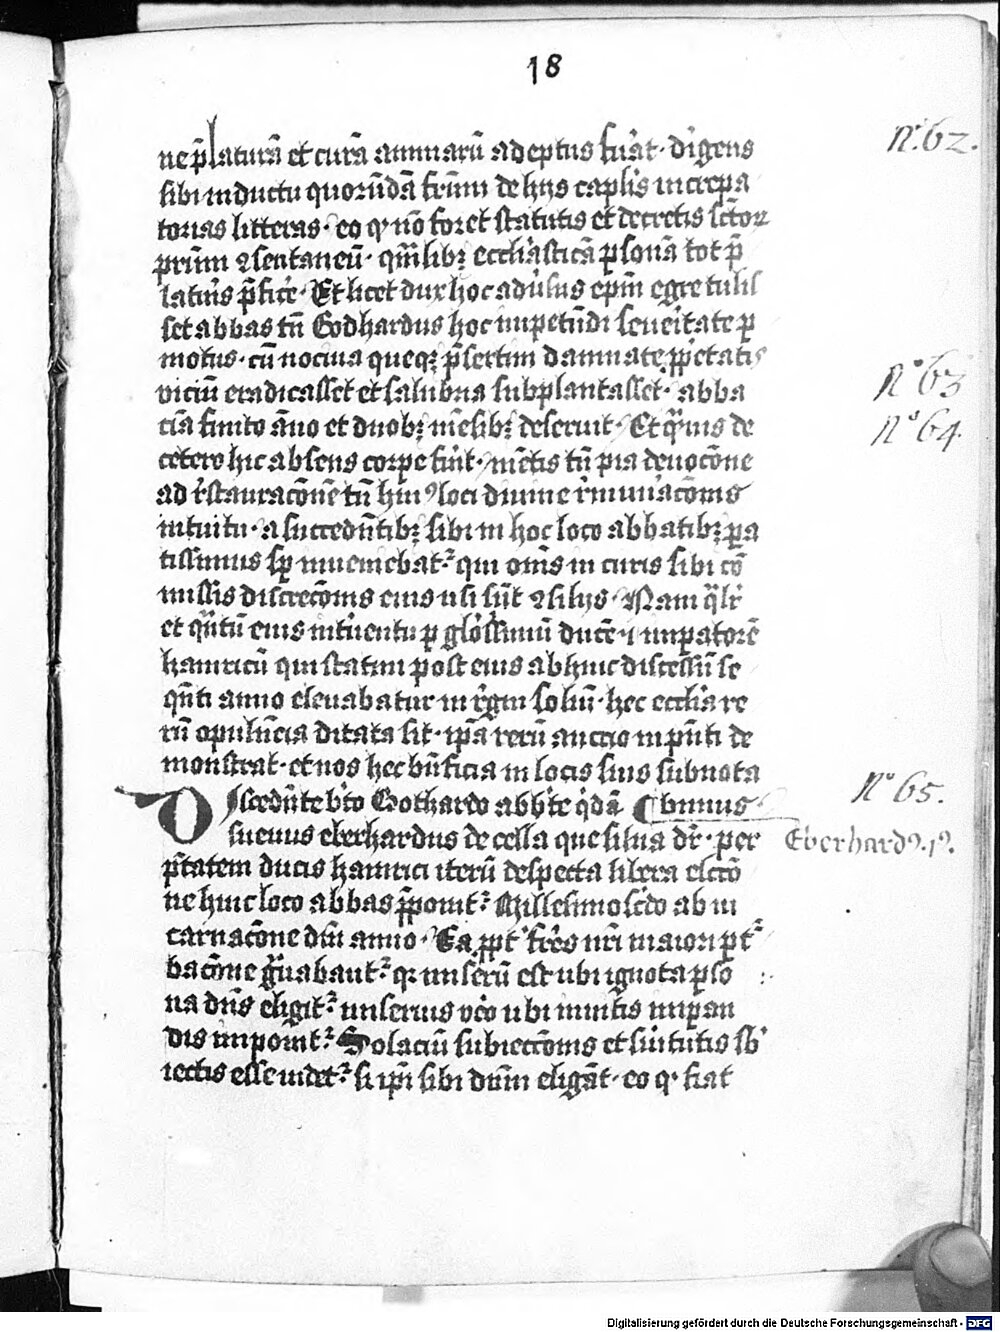 18
ne p̄laturā et curā animarū adeptus fu᷑at · dirigens
sibi inductu quorūdā frūm de hijs caplis increpa
torias litteras · eo q nō foret statutis et decretis sctoꝝ
prūm ꝯsentaneū · qm̄libꝫ eccliasticā ꝑsonā tot p̄
latur̄is p̄fice᷑ · Et licet dux hoc adūsus ep̄m egre tulis
set abbas tn̄ Godhardus hoc impetūdi seueritate ꝑ
motus · cū nociua queqꝫ p̄sertim damnate ꝓprietatis
viciū eradicasset et salubria subplantasset · abba
ciā finito āno et duobꝫ mēsibꝫ deseruit · Et qͣmuis de
cetero hic absens corpe fu᷑it · mētis tn̄ pia deuocōne
ad r̄stauracōnē tn̄ hui᷒ loci diuine r̄mun᷑acōnis
intuitu · a succedētibꝫ sibi in hoc loco abbatibꝫ ꝑa
tissimus sꝑ inueniebat᷑ qui om̄s in curis sibi cō
missis discrecōnis eius usi sūt ꝯsilijs · Nam qͣlr̄
et qͣntū eius int᷑uentu ꝑ glōssimū ducē · i imꝑatorē
hainricū qui statim post eius abhinc discessū se
qn̄ti anno eleuabatur in r̄gni soliū · hec ecclia re
rū opulēcia ditata sit · ip̄a rerū auctio in p̄n̄ti de
monstrat · et nos hec bn̄ficia in locis suis subnota
Discedn̄te bt̄o Gothardo abbt̄e qͥdā bimus
sueuus eberhardus de cella que silua dr̄ · per
p̄tatem ducis hainrici iterū despecta libera elcō
ne huic loco abbas p̄ponit᷑ Millesimo scdo ab in
carnacōne dn̄i anno · Ea ꝓpt᷑ fr̄es nr̄i maiori ꝑt᷑
bacōne gͣuabant᷑ qꝛ miserū est ubi ignota ꝑso
na dn̄s eligit᷑ miserius vō ubi inuitis inꝑan
dis imponit᷑ Solaciū subieccōnis et suitutis sb̄
iectis esse uidet᷑ si ip̄i sibi dn̄m eligāt · eo q fiat
N.° 62.
N.° 63
N.° 64
N.° 65.
Eberhard᷒ .1᷒.
Digitalisierung gefördert durch die Deutsche Forschungsgemeinschaft - DFG